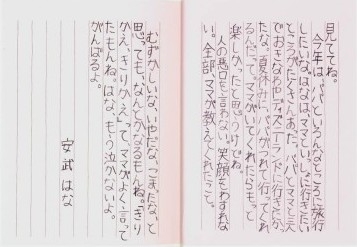 見ててね。
今年は、パパといろんなところに旅行
したいな。はなはママといっしょに行きたい
ところがたくさんあった。パパとママと天
でおきなわやディズニーランドに行きたかっ
たな。夏休みにパパがつれて行ってくれ
るんだって。ママが
楽しかったと思うけどね。
人の悪口も言わない。笑顔もわすれな
い。全部、ママが教えてくれたこと。
むずかしいな、いやだな、こまったな、と
思っても、なんとかなるもんね。「きり
かえ、きりかえ」って、ママがよく言って
たもんね。はな、もう泣かないよ。
がんばるよ。
安武はな